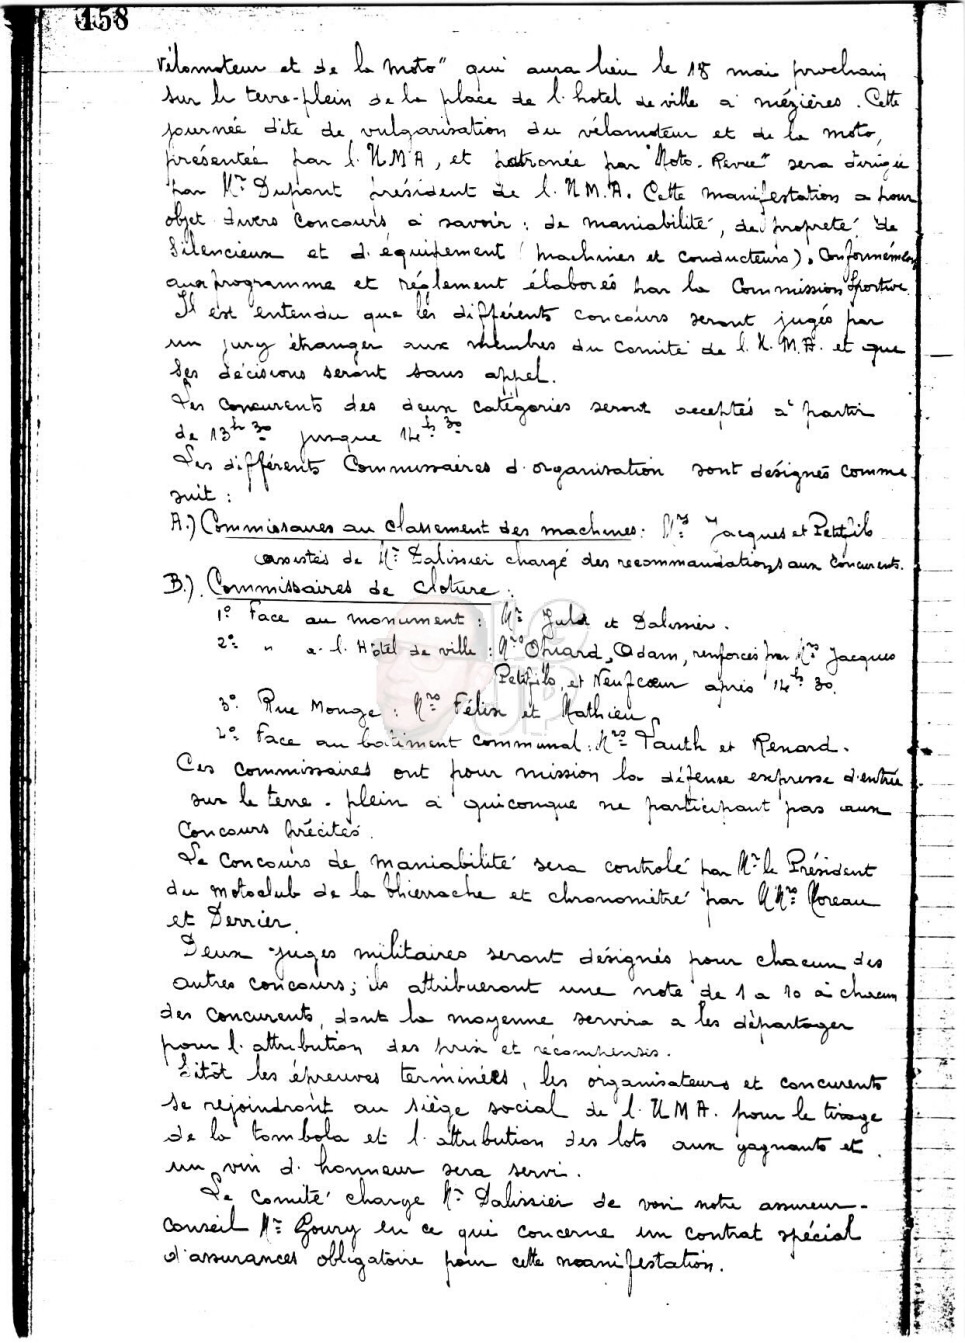 158
Vélomoteur et de la Moto" qui aura lieu le 18 mai prochain
sur le terre-plein de la place de l'hotel de ville a mézières. Cette
journée dite de vulgarisation du vélomoteur et de la moto,
présentée par l'UMA, et patronée par "Moto-Revue" sera dirigée
par Mr Dupont président de l'U.M.A. Cette manifestation a pour
objet divers concours à savoir : de maniabilité, de propreté, de
silencieux et d'équipement (machines et conducteurs), conformément
aux programme et réglement élaborés par la Commission Sportive.
Il est entendu que les différents concours seront jugés par
un jury étranger aux membres du Comité de l'U.M.A. et que
ses décisions seront sans appel.
Les concurents des deux catégories seront acceptés à partir
de 13h30 jusque 14h30
Les différents Commissaires d'organisation sont désignés comme
suit :
A.) Commissaires au classement des machines : Mrs Jacques et Petitfils
assistés de Mr Dalissier chargé des recommandations aux concurents.
B.) Commissaires de cloture :
1° Face au monument : Mrs et Dalissier.
2° " a l'Hôtel de ville : Mrs Adam, renforcés par Mrs Jacques
Petitfils, et Neufcoeur après 14h30.
3° Rue Monge : Mrs Félix et Mathieu
2° Face au batiment communal : Mrs Tauth et Renard.
Ces commissaires ont pour mission la défense expresse d'entrée
sur le terre-plein à quiconque ne participant pas aux
Concours précités.
Le Concours de maniabilité sera controlé par Mr le Président
du Motoclub de la Thierrache et chronométré par MMrs Moreau
et Derrier.
Deux juges militaires seront désignés pour chacun des
autres concours ; ils attribueront une note de 1 a 10 à chacun
des concurents, dont la moyenne servira a les départager
pour l'attribution des prix et récompenses.
Sitôt les épreuves terminées, les organisateurs et concurents
se rejoindront au siège social de l'UMA. pour le tirage
de la tombola et l'attribution des lots aux gagnants et
un vin d'honneur sera servi.
Le Comité charge Mr Dalissier de voir notre assureur-
conseil Mr Goury en ce qui concerne un contrat spécial
d'assurances obligatoire pour cette manifestation.